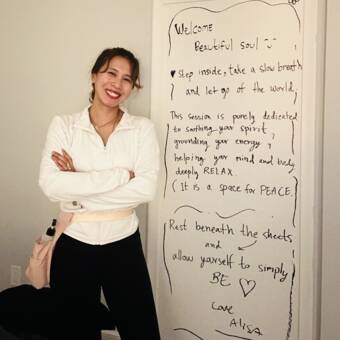 Welcome
Beautiful Soul
♥ Step inside, take a slow breath
and let go of the world,
This session is purely dedicated
to soothing your spirit,
grounding your energy,
helping your mind and body
deeply RELAX
(It is a space for PEACE.
Rest beneath the sheets
and
allow yourself to simply
BE ♡
Love
Alisa